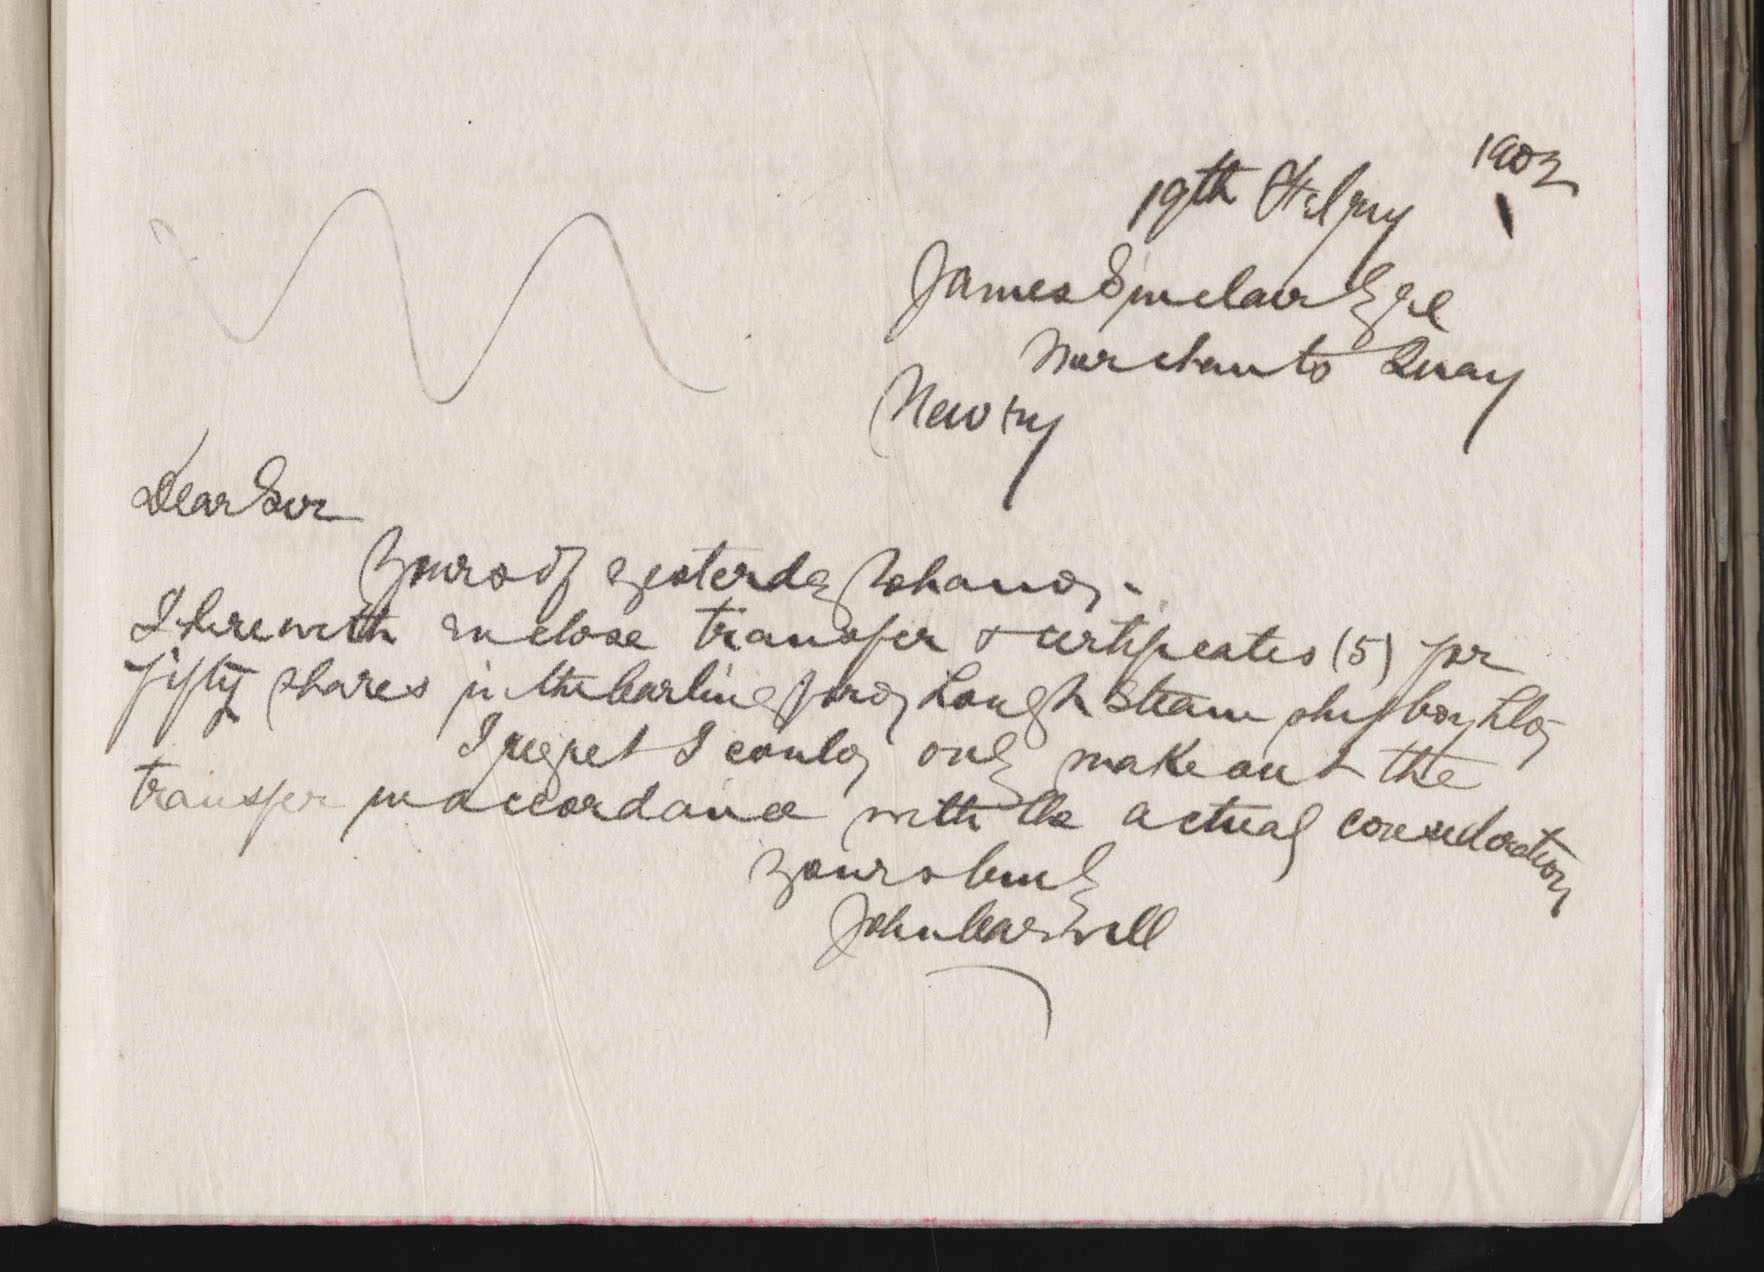 19th Febry 1902
James Sinclair Esqe
Merchants Quay
Newry
Dear Sir
Yours of yesterday to hand.-
I herewith enclose transfer & certificates (5) for
fifty shares in the Carlingford Lough Steam ship Coy Ltd
I regret I could only make out the
transfer in accordance with the actual consideration
Yours truly
John Carswell